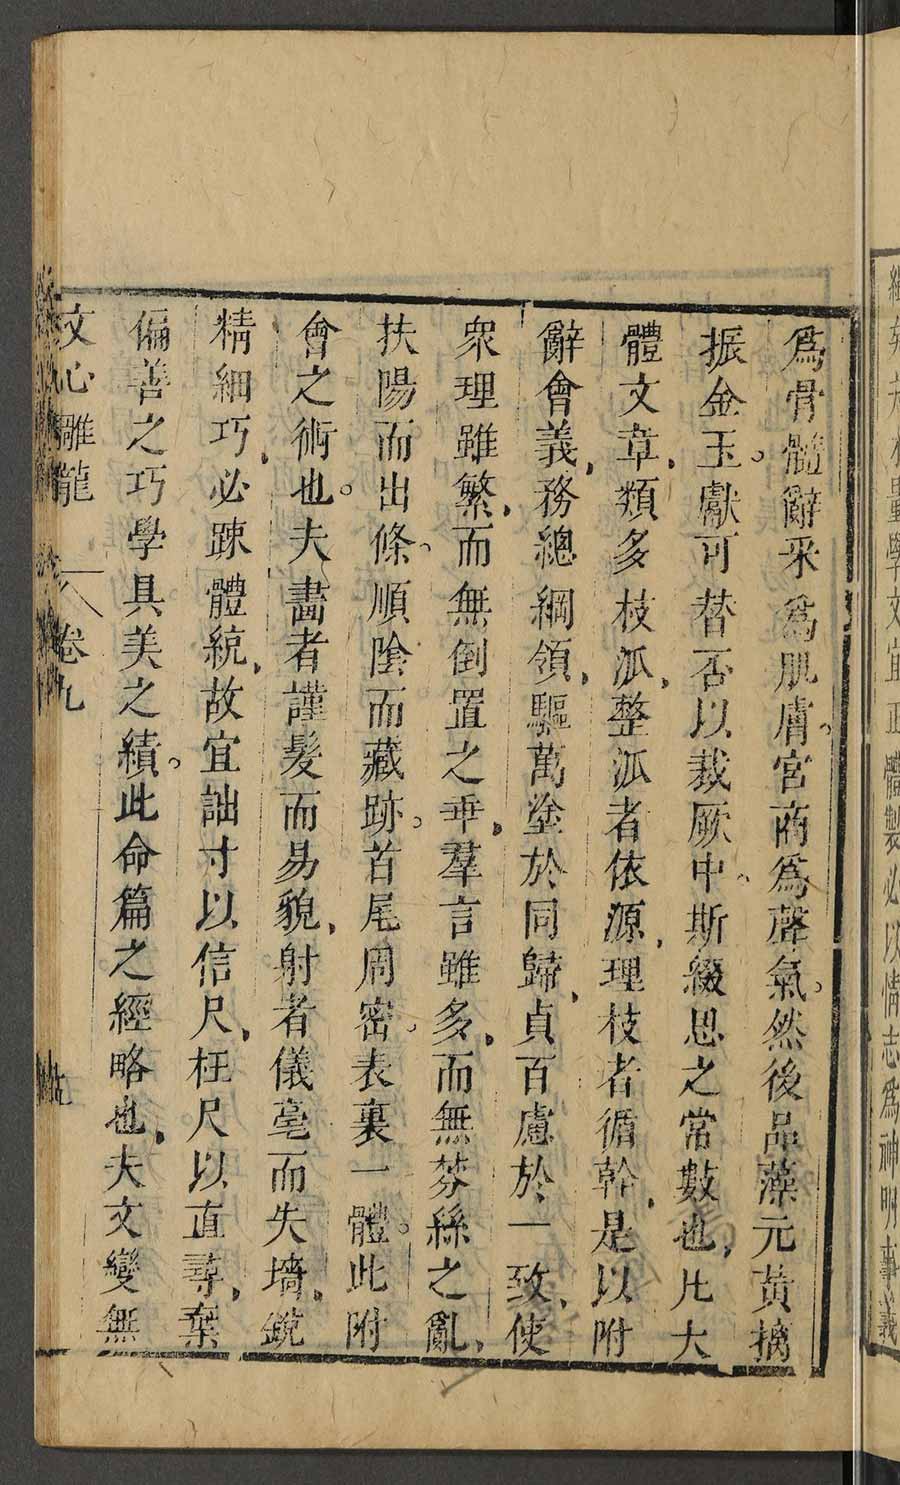 繩矩大小量學文宜正體製必以情志爲神明事義
爲骨髓辭采爲肌膚宮商爲聲氣。然後品藻元黃摛
振金玉。獻可替否以裁厥中。斯綴思之常數也，凡大
體文章，類多枝派，整派者依源，理枝者循幹，是以附
辭會義，務總綱領，驅萬塗於同歸，貞百慮於一致，使
衆理雖繁，而無倒置之乖，羣言雖多，而無棼絲之亂，
扶陽而出條。順陰而藏跡。首尾周密。表裏一體。此附
會之術也。夫畵者謹髮而易貌，射者儀毫而失墻，銳
精細巧，必踈體統，故宜詘寸以信尺，枉尺以直尋，棄
偏善之巧學具美之績。此命篇之經略也，夫文變無
文心雕龍　卷九